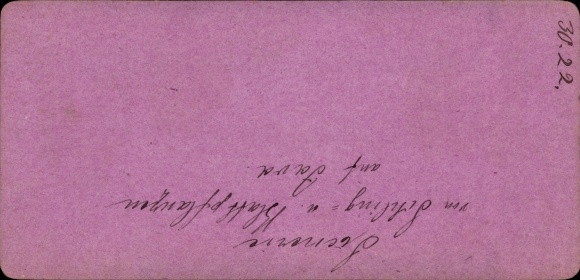 Scenerie
von Schling= u. Blattpflanzen
auf Java.
30.22.